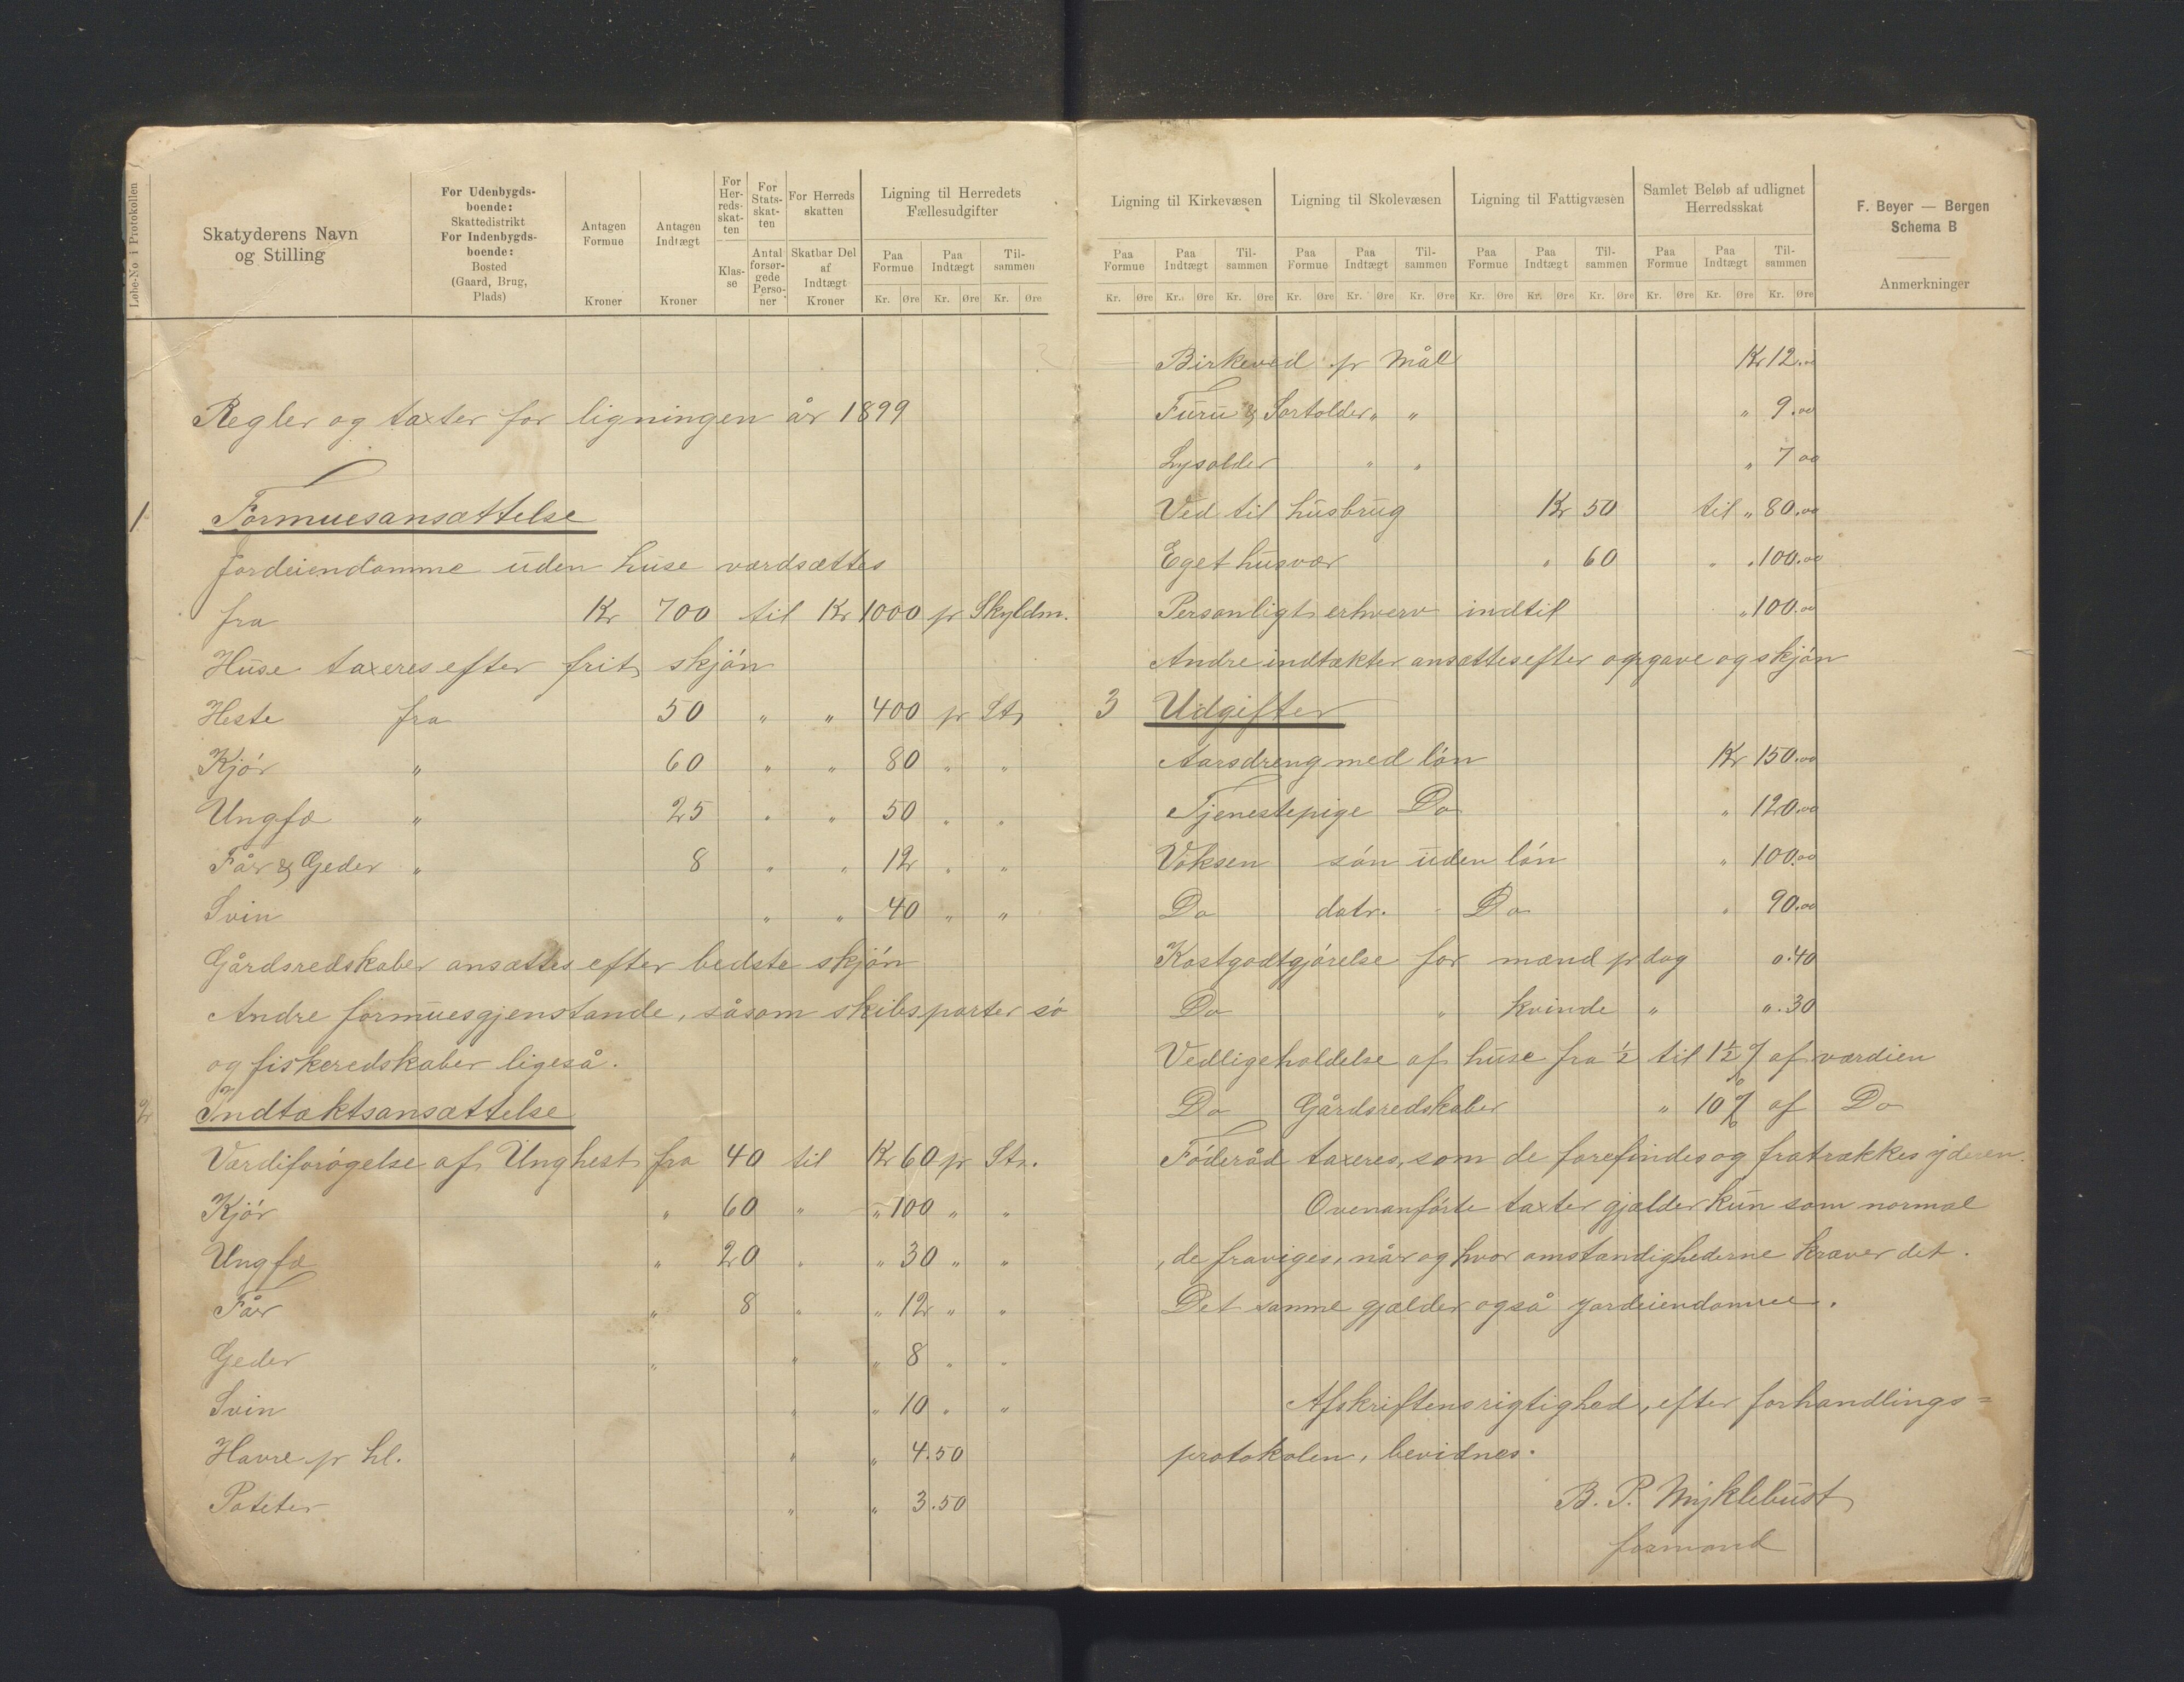 Løbe-No. i Protokollen
Skatyderens Navn og Stilling
For Udenbygdsboende: Skattedistrikt For Indenbygdsboende: Bosted (Gaard, Brug, Plads)
Antagen Formue Kroner
Antagen Indtægt Kroner
For Herredsskatten Klasse
For Statsskatten Antal forsørgede Personer
For Herredsskatten Skatbar Del af Indtægt Kroner
Ligning til Herredets Fællesudgifter
Paa Formue Paa Indtægt Tilsammen
Kr. Øre Kr. Øre Kr. Øre
Regler og taxter for ligningen år 1899
1 Formuesansættelse
Jordeiendomme uden huse værdsættes
fra Kr 700 til Kr 1000 pr Skyldm.
Huse taxeres efter frit skjön
Heste fra 50 " " 400 pr St.
Kjör " 60 " " 80 " "
Ungfæ " 25 " " 50 " "
Får & Geder " 8 " " 12 " "
Svin " " 40 " "
Gårdsredskaber ansættes efter bedste skjön
Andre formuesgjenstande, såsom skibsparter sö
og fiskeredskaber ligeså.
2 Indtæktsansættelse
Værdiforögelse af Unghest fra 40 til Kr 60 pr St.
Kjör " 60 " " 100 " "
Ungfæ " 20 " " 30 " "
Får " 8 " " 12 " "
Geder " " " 8 " "
Svin " " 10 " "
Havre pr hl. " " 4.50
Poteter " " 3.50
Ligning til Kirkevæsen Ligning til Skolevæsen Ligning til Fattigvæsen Samlet Beløb af udlignet Herredsskat
Paa Formue Paa Indtægt Tilsammen Paa Formue Paa Indtægt Tilsammen Paa Formue Paa Indtægt Tilsammen Paa Formue Paa Indtægt Tilsammen
Kr. Øre Kr. Øre Kr. Øre Kr. Øre Kr. Øre Kr. Øre Kr. Øre Kr. Øre Kr. Øre Kr. Øre Kr. Øre Kr. Øre
F. Beyer — Bergen
Schema B
Anmerkninger
Birkeved pr Mål Kr 12.00
Furu & Sortolder " " " 9.00
Lysolder " " " 7 00
Ved til husbrug Kr 50 til " 80.00
Eget husvær " 60 " " 100.00
Personligt erhverv indtil " 100.00
Andre indtækter ansættes efter opgave og skjön
3 Udgifter
Aarsdreng med lön Kr 150.00
Tjenestepige Do " 120.00
Voksen sön uden lön " 100.00
Do datr. " Do " 90.00
Kostgodtgjörelse for mænd pr dag 0.40
Do " kvinde " ".30
Vedligeholdelse af huse fra ½ til 1½ % af værdien
Do Gårdsredskaber " 10 % af Do
Föderåd taxeres, som de forefindes og fratrækkes yderen.
Ovenanförte taxter gjælder kun som normal
, de fraviges, når og hvor omstændighederne kræver det.
Det samme gjælder også jordeiendomme.
Afskriftens rigtighed, efter forhandlings=
protokolen, bevidnes.
B. P. Myklebust
formand